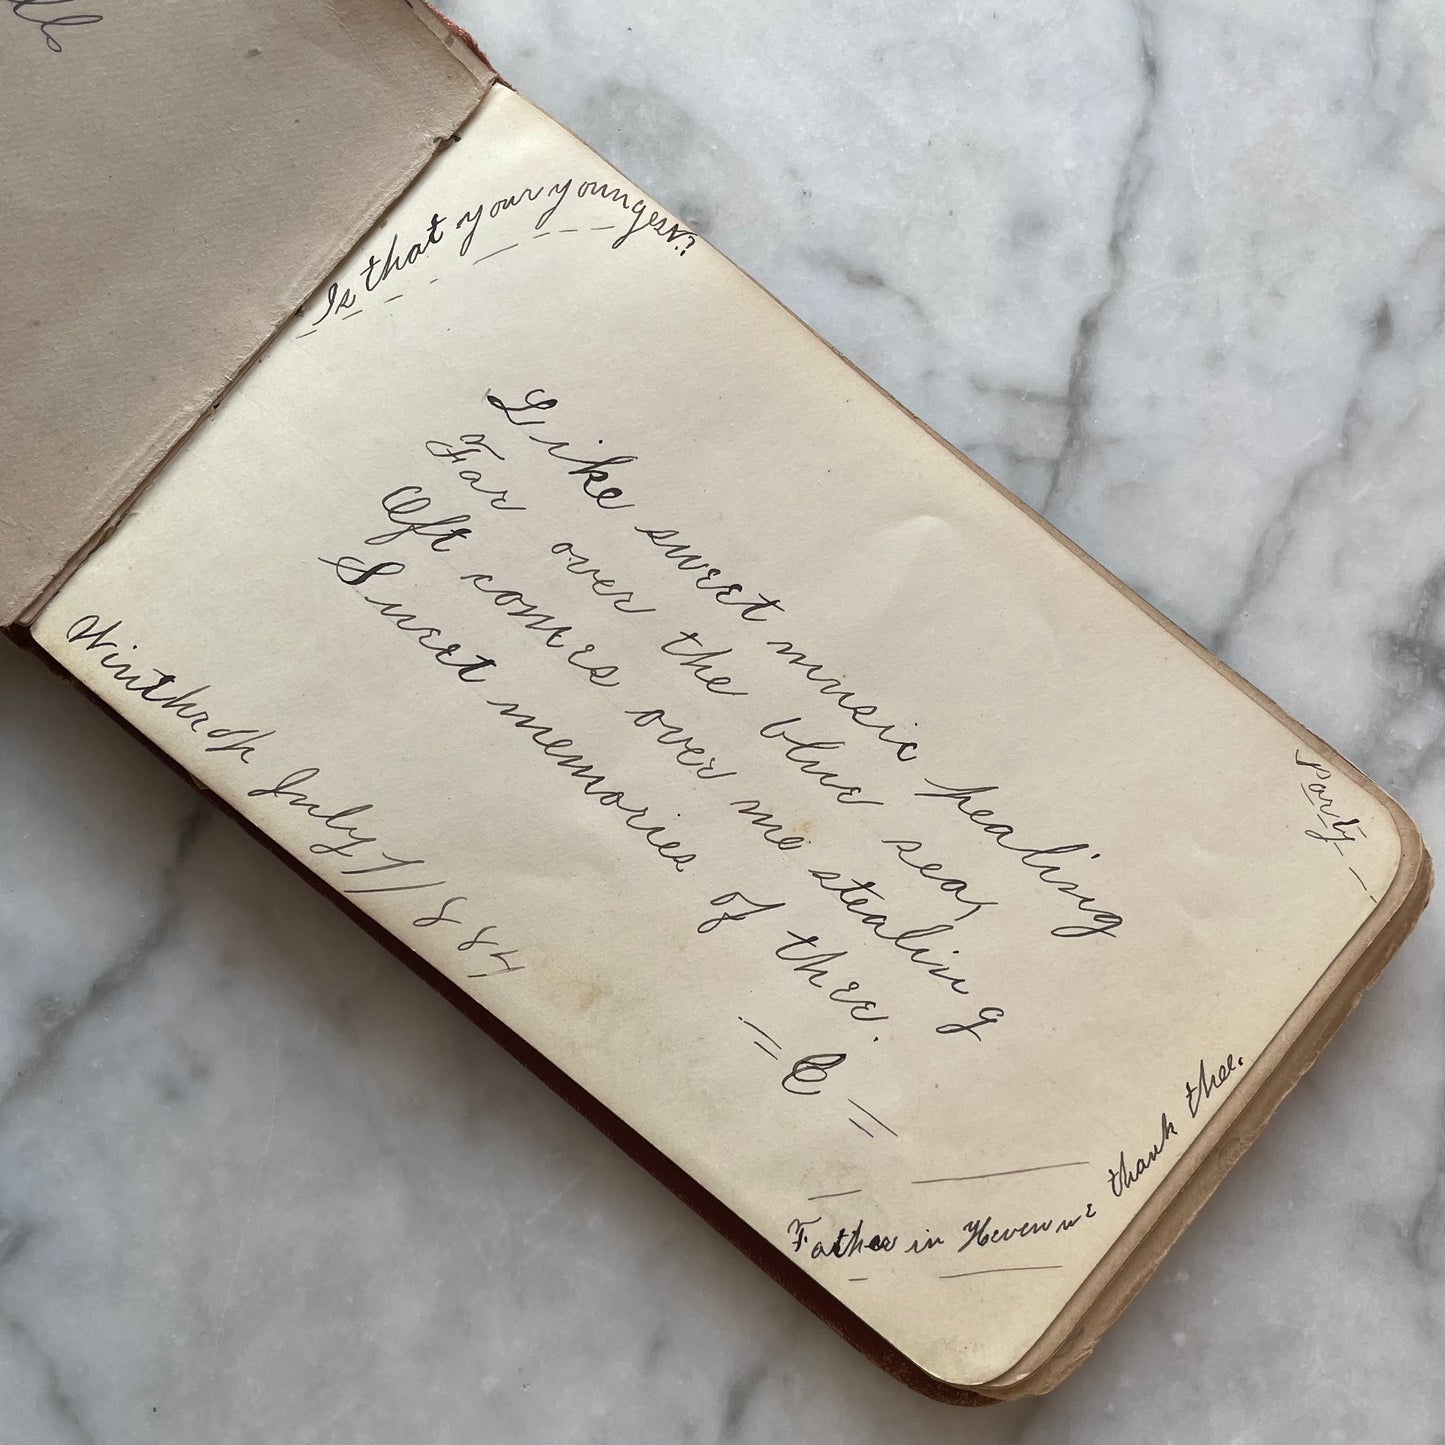 Is that your youngest?
Like sweet music healing
Far over the blue sea,
Oft comes over me stealing
Sweet memories of thee.
= C =
Winthrop July 7/1884
Party
Father in Heven we thank thee.